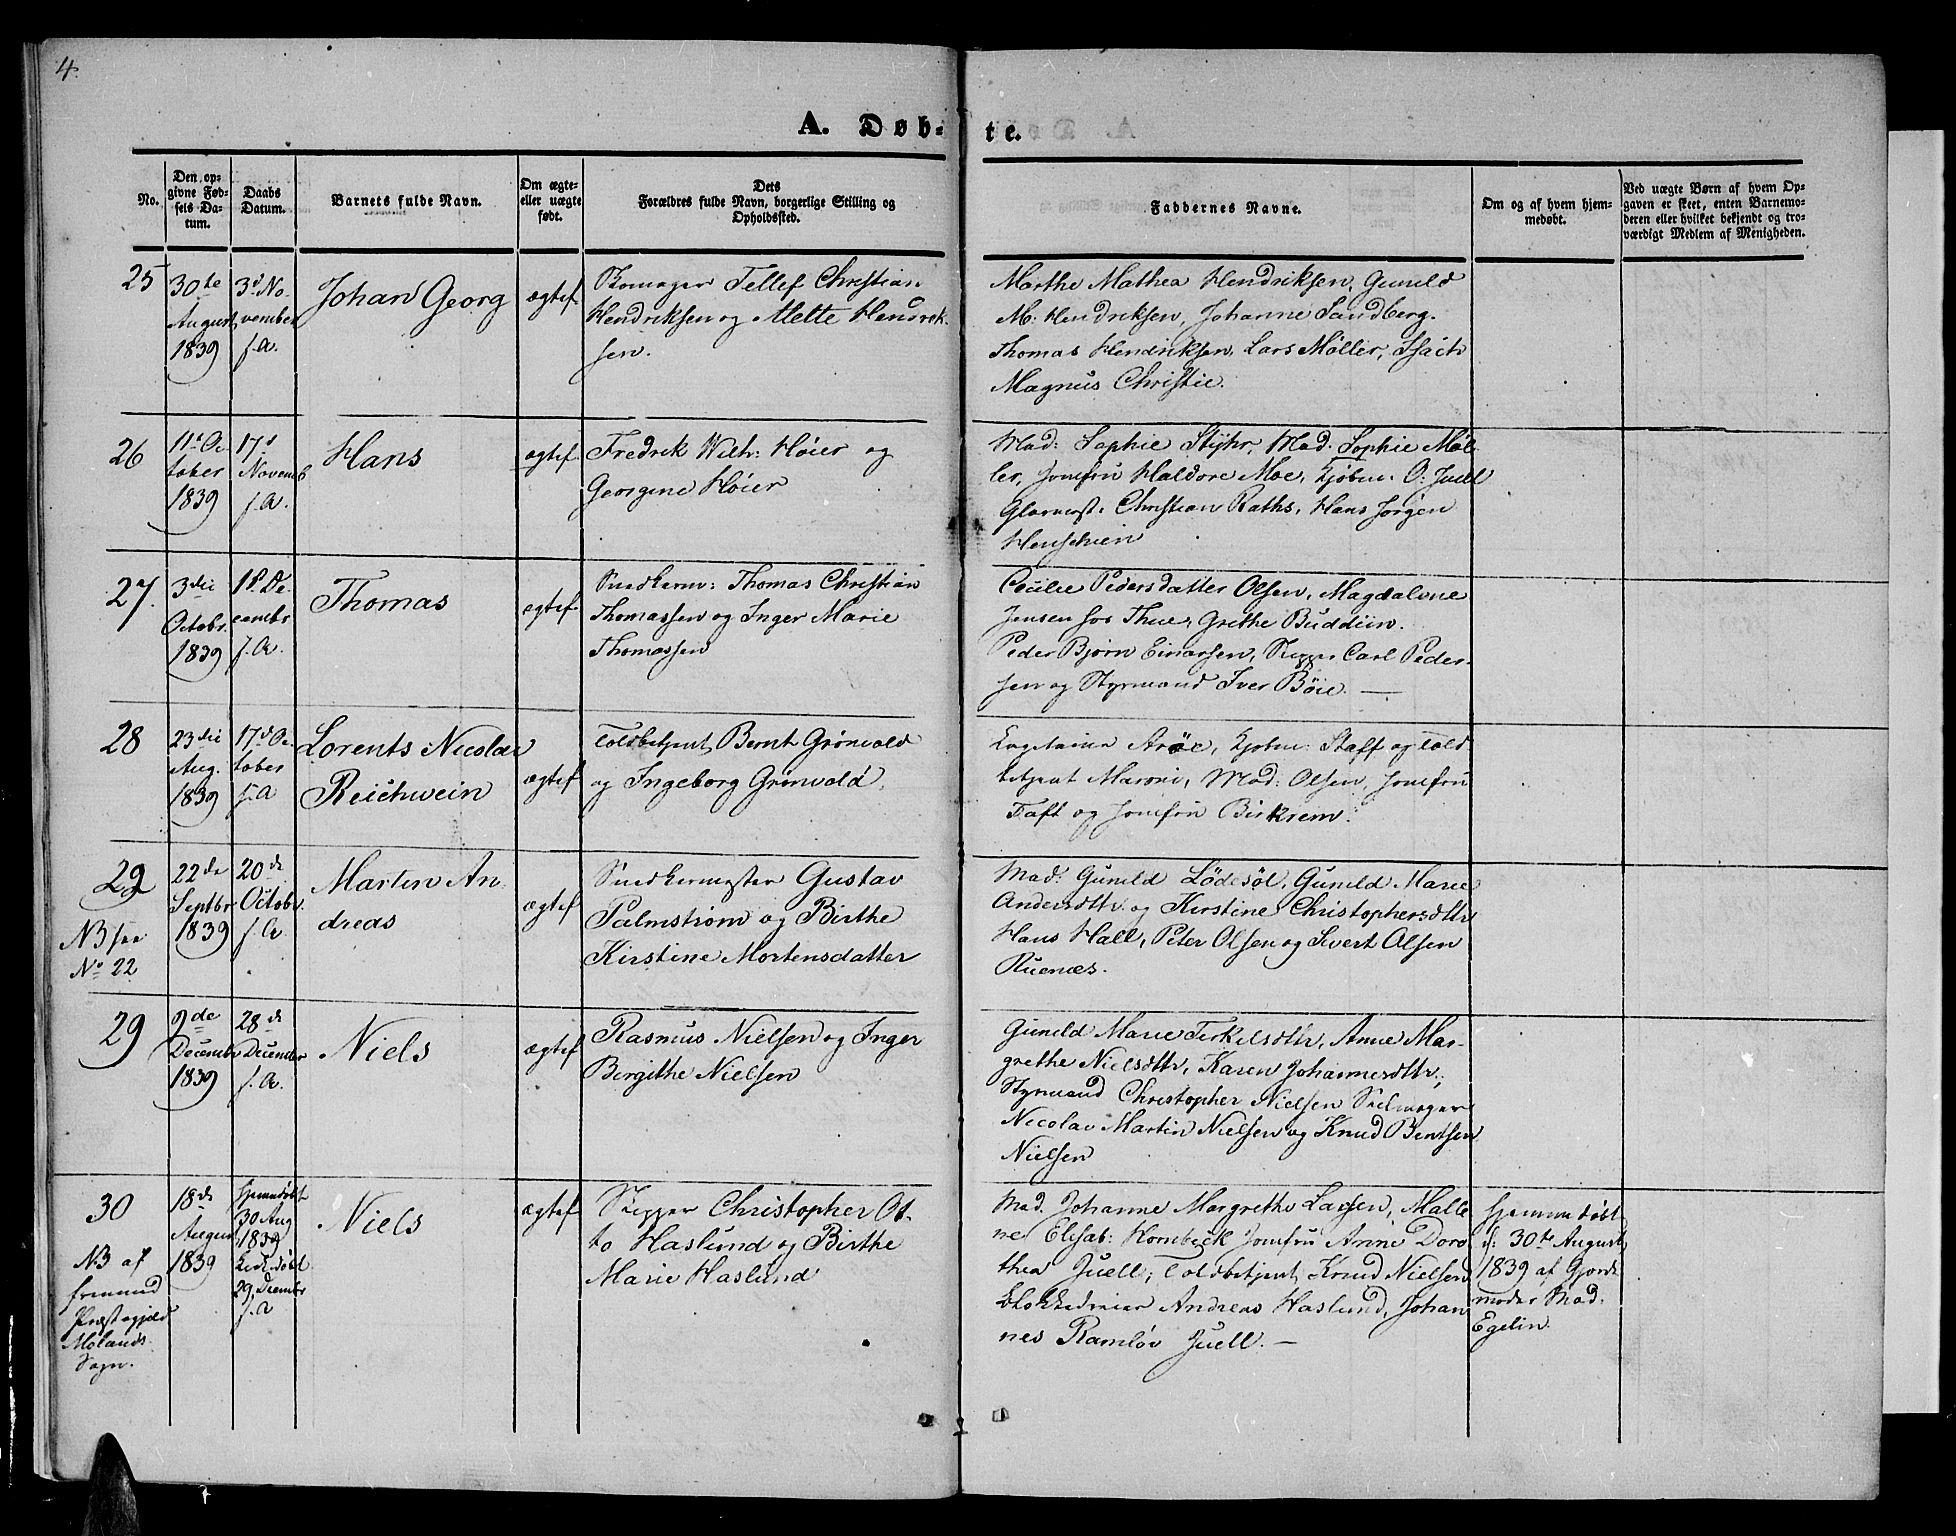 4.
A. Døb-
te.
No.
Den op-
givne Fød-
sels Da-
tum.
Daabs
Datum.
Barnets fulde Navn.
Om ægte-
eller uægte
født.
Dets
Forældres fulde Navn, borgerlige Stilling og
Opholdssted.
Faddernes Navne.
Om og af hvem hjem-
medøbt.
Ved uægte Børn af hvem Op-
gaven er skeet, enten Barnemo-
deren eller hvilket bekjendt og tro-
værdigt Medlem af Menigheden.
25
30te
August
1839
3d No-
vember
f. A.
Johan Georg
ægtef
Skomager Tellef Christian
Hendriksen og Mette Hendrik-
sen.
Marthe Mathea Hendriksen, Gunild
M: Hendriksen, Johanne Sandberg.
Thomas Hendriksen, Lars Møller,
Magnus Christie.
26
11te Oc
tober
1839
17d
Novemb
f. A.
Hans
ægtef
Fredrik Wilh: Høier og
Georgine Høier
Mad: Sophie Støhr, Mad. Sophie Møl-
ler, Jomfru Haldore Moe, Kjøbm. O: Juell
Glarmest. Christian Raths, Hans Jørgen
Henschien
27.
3die
Octobr.
1839
1st De
cembr
f. A.
Thomas
ægtef
Snedkerm: Thomas Christian
Thomassen og Inger Marie
Thomassen
Cecilie Pedersdatter Olsen, Magdalene
Jensen hos Thue, Grethe Buddein.
Peder Bjørn Einarsen, Skipper Carl Peder-
sen og Styrmand Iver Böie. —
28
23die
Aug.
1839
17d Oc
tober
f. A
Lorents Nicolai
Reichwein
ægtef
Toldbetjent Bernt Grönvold
og Ingeborg Grönvold.
Capitain Arøe, Kjøbm: Staff og Told-
betjent Maroni, Mad: Olsen, Jomfru
Taft og Jomfru Birkrem.
29
NB see
No 22
22de
Septbr
1839
20de
Octobr.
f. A.
Martin An-
dreas
ægtef
Snedkermester Gustav
Palmstrøm og Birthe
Kirstine Mortensdatter
Mad: Gunild Lödesöl, Gunild Marie
Andersdttr og Kirstine Christophersdttr
Hans Hall, Peter Olsen og Sivert Olsen
Ruenæs.
29
9de
Decembr
1839
28de
December
f. A.
Niels
ægtef
Rasmus Nielsen og Inger
Birgithe Nielsen
Gunild Marie Terkelsdttr, Anne Mar-
grethe Nielsdttr, Karen Johannesdttr,
Styrmand Christopher Nielsen Seilmager
Nicolai Martin Nielsen og Knud Bentsen
Nielsen
30
NB af
fremmed
Præstegjeld
Molands
Sogn.
18de
August
1839
Hjemmedøbt
30 Aug
1839
Kirkedøbt
29 Decembr
f. A
Niels
ægtef
Skipper Christopher Ot-
to Haslund og Birthe
Marie Haslund
Mad. Johanne Margrethe Larsen, Malle
ne Elisab: Hornbeck Jomfru Anne Doro
thea Juell, Toldbetjent Knud Nielsen
Blokkedreier Andreas Haslund, Johan
nes Ramlöv Juell. —
Hjemmedøbt
d: 30te August
1839 af Gjorde
moder Mad:
Egelin.